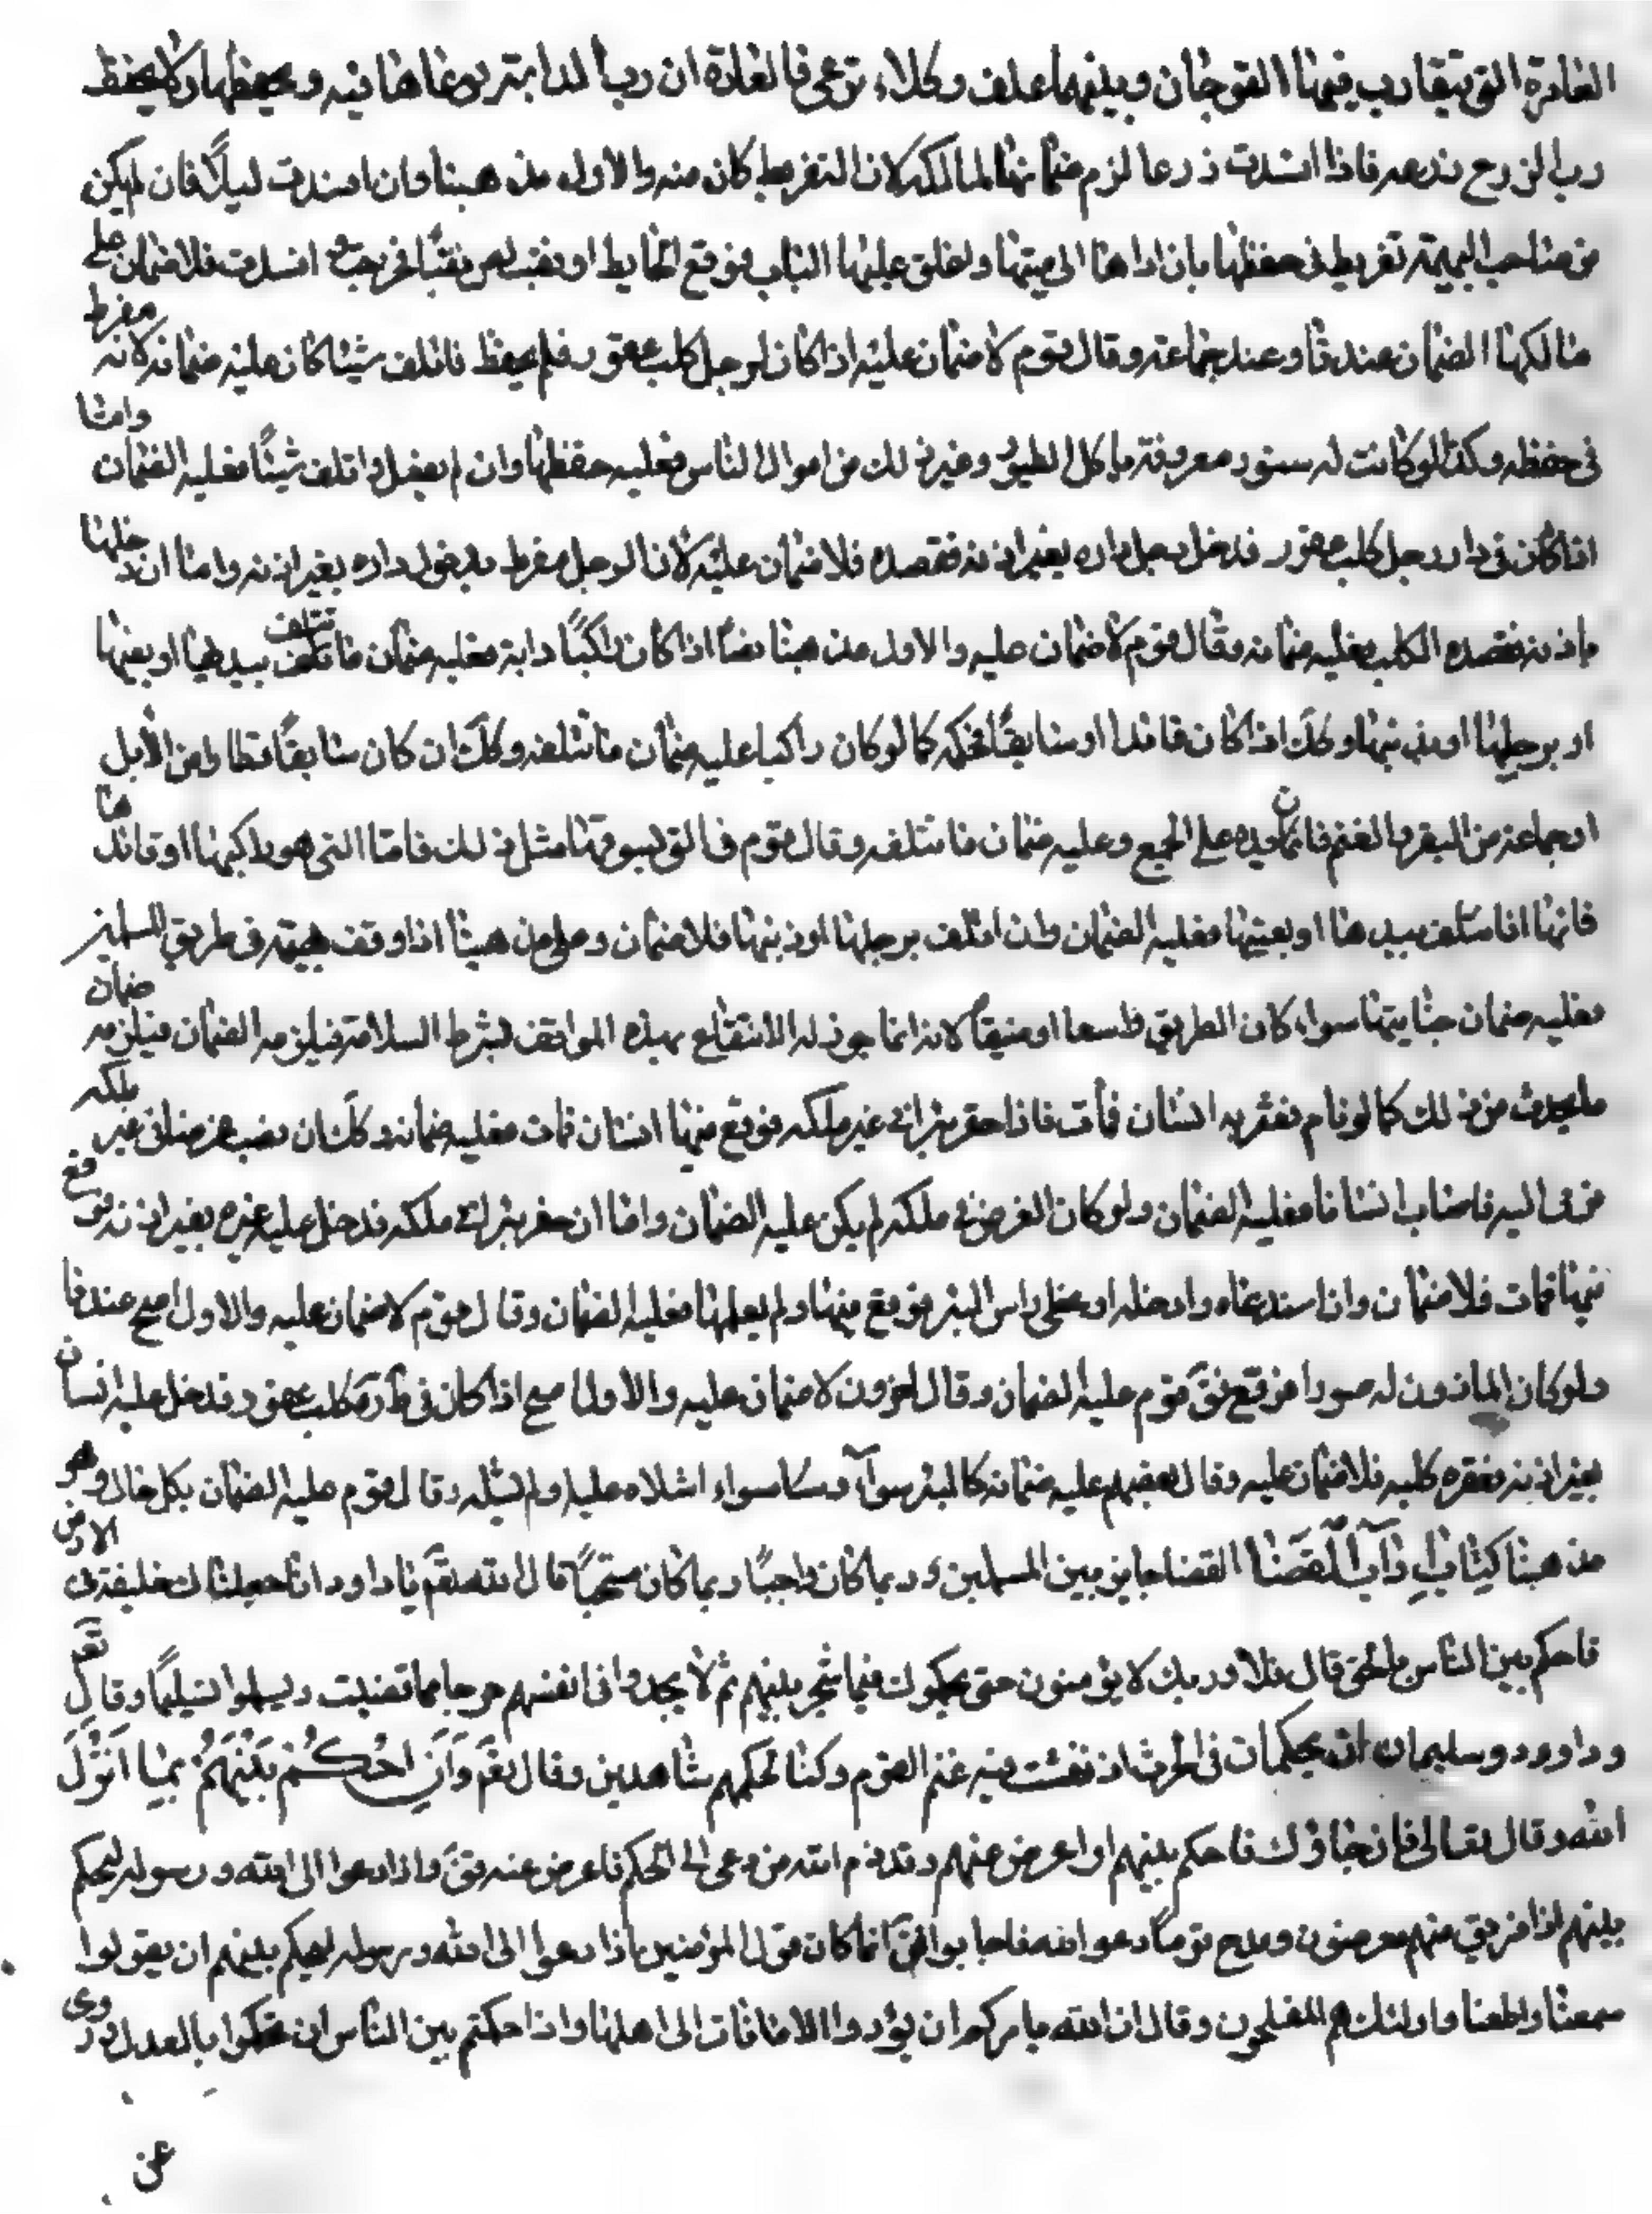 العامرة التي يتقارب فيها القوحان وبينهما علف وكلاء ترعى فالعادة ان رب الدابة يرعاها فيه ويحفظها ولا يحفظ
رب الزرع زرعه فاذا افسدت زرعا لزم ضمانها لمالكه لان التفريط كان منه والاول مذهبنا وان افسدت ليلًا فان لم يكن
من صاحب البهيمة تفريط في حفظها بان اداها الى بيتها واغلق عليها الباب فوقع الحايط او نقب لص نقبًا فخرجت افسدت فلا ضمان على
مالكها الضمان عندنا وعند جماعة وقال قوم لا ضمان عليه اذا كان لرجل كلب عقور فلم يحفظ فاتلف شيئا كان عليه ضمانه لانه مفرط
في حفظه وكذا لو كانت له سنور معروفة باكل الطيور وغير ذلك من اموال الناس فعليه حفظها وان لم يفعل واتلف شيئًا فعليه الضمان وامّا
اذا كان في دار رجل كلب عقور فدخل رجل داره بغير اذنه فقصده فلا ضمان عليه لان الرجل مفرط بدخول داره بغير اذنه وامّا ان دخلها
باذنه فقصده الكلب فعليه ضمانه وقال قوم لا ضمان عليه والاول مذهبنا اذا كان راكبًا دابة فعليه ضمان ما تتلف بيدها او بفيها
او برجلها او بذنبها وكك اذا كان قائدا او سايقًا فحكمه كما لو كان راكبا عليه ضمان ما تتلفه وكك ان كان سايقًا قطارا من الابل
او جماعة من البقر والغنم فان يده على الجميع وعليه ضمان ما تتلفه وقال قوم في التي يسوقها مثل ذلك فامّا التي هو راكبها او قائدها
فانها اذا تتلف بيدها او بفيها فعليه الضمان وان اتلف برجلها او ذنبها فلا ضمان وهو مذهبنا اذا وقف بهيمة في طريق المسلمين
فعليه ضمان جنايتها سواء كان الطريق واسعا او ضيقًا لانه انما يجوز له الانتفاع بهذه المواقف بشرط السلامة فيلزمه الضمان فيلزمه ضمان
ما يحدث من ذلك كما لو نام فعثر به انسان فمات فاذا حفر بئرا في غير ملكه فوقع فيها انسان فمات فعليه ضمانه وكك ان نصب غرضا في غير ملكه
فرمى اليه فاصاب انسانا فعليه الضمان ولو كان الغرض في ملكه لم يكن عليه الضمان وامّا ان حفر بئرا في ملكه فدخل عليه غيره بغير اذنه فوقع
فيها فمات فلا ضمان وان استدعاه وادخله او غطى راس البئر فوقع فيها ولم يعلمها فعليه الضمان وقال قوم لا ضمان عليه والاول اصح عندنا
ولو كان الماذون له ضريرا فوقع فق قوم عليه الضمان وقال اخرون لا ضمان عليه والاول اصح اذا كان في داره كلب عقور فدخل عليه انسان
بغير اذنه فعقره كلبه فلا ضمان عليه وقال بعضهم عليه ضمانه كالبئر سواء سواء اشلاه عليه او لم يشله وقال قوم عليه الضمان بكل حال وهو
مذهبنا كِتَابُ آدَابِ القَضَاء القضا جايز بين المسلمين وربما كان واجبًا وربما كان مستحبًّا قال الله تعَ يا داود انا جعلناك خليفة في الارض
فاحكم بين الناس بالحق قال فلا وربك لا يؤمنون حتى يحكموك فيما شجر بينهم ثم لا يجدوا في انفسهم حرجا مما قضيت ويسلموا تسليمًا وقال تعَ
وداوود وسليمان اذ يحكمان في الحرث اذ نفشت فيه غنم القوم وكنا لحكمهم شاهدين وقال تعَ وَاَنِ احْكُمْ بَيْنَهُمْ بِمَا اَنْزَلَ
الله وقال تعالى فان جاؤك فاحكم بينهم او اعرض عنهم وقد ذم الله من دعي الى الحكم فاعرض عنه فقَ واذا دعوا الى الله ورسوله ليحكم
بينهم اذا فريق منهم معرضون ومدح قومًا دعوا الله فاجابوا فقَ انما كان قول المؤمنين اذا دعوا الى الله ورسوله ليحكم بينهم ان يقولوا
سمعنا واطعنا واولئك هم المفلحون وقال ان الله يامركم ان تؤدوا الامانات الى اهلها واذا حكمتم بين الناس ان تحكموا بالعدل وروى
عن